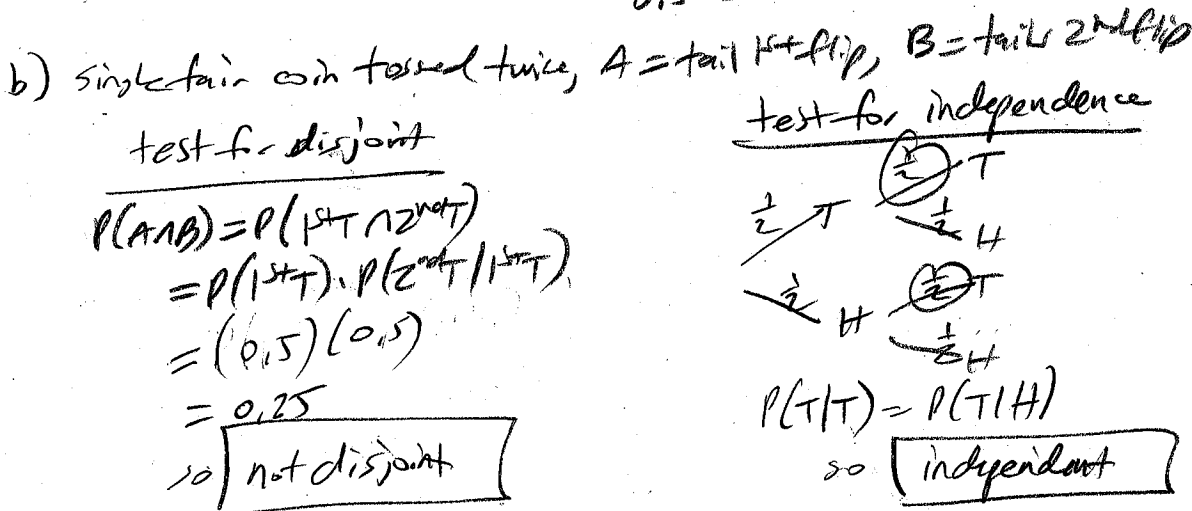 b) single fair coin tossed twice, A = tail 1st flip, B = tails 2nd flip
test for disjoint
P(A∩B) = P(1st T ∩ 2nd T)
= P(1st T) · P(2nd T / 1st T)
= (0,5)(0,5)
= 0,25
so not disjoint
test for independence
1/2 T 1/2 T
1/2 H
1/2 H 1/2 T
1/2 H
P(T|T) = P(T|H)
so independent